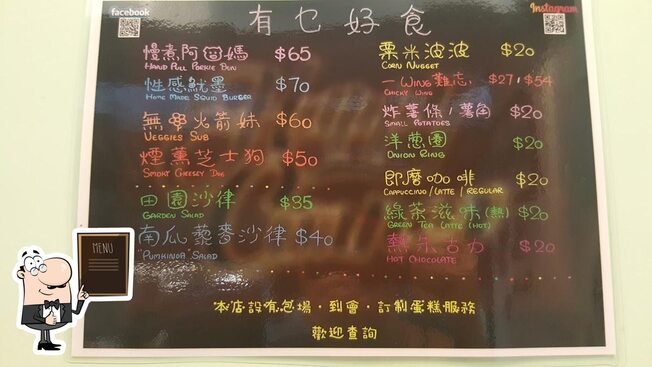 facebook
有乜好食
Instagram
慢煮阿豬媽 $65
HAND PULL PORKIE BUN
性感魷墨 $70
HOME MADE SQUID BURGER
無 火箭妹 $60
VEGGIES SUB
煙薰芝士狗 $50
SMOKY CHEESEY DOG
田園沙律 $35
GARDEN SALAD
南瓜藜麥沙律 $40
PUMKINOA SALAD
粟米波波 $20
CORN NUGGET
一WING難忘 $27/$54
CHICKY WING
炸薯條/薯角 $20
SMALL POTATOES
洋葱圈 $20
ONION RING
即磨咖啡 $20
CAPPUCCINO/LATTE/REGULAR
綠茶滋味(熱) $20
GREEN TEA LATTE (HOT)
熱朱古力 $20
HOT CHOCOLATE
本店設有包場·到會·訂制蛋糕服務
歡迎查詢
MENU